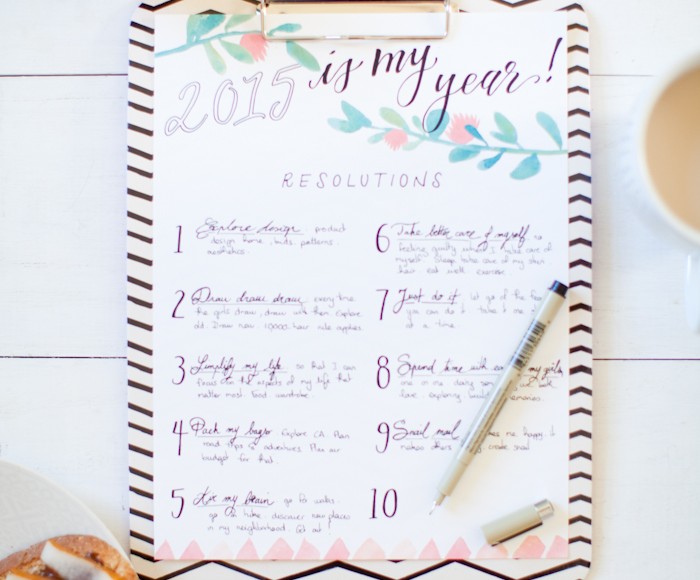 2015 is my year!
RESOLUTIONS
1 Explore design product
design home, kids, patterns.
aesthetics.
2 Draw draw draw every time
the girls draw, draw with them. Explore
old. Draw new. 10,000 hour rule applies
3 Simplify my life so that I can
focus on the aspects of my life that
matter most. food wardrobe.
4 Pack my bags Explore CA. Plan
road trips & adventures. Plan our
budget for that.
5 Air my brain go for walks.
go hike discover new places
in my neighborhood. Get out!
6 Take better care of myself no
feeling guilty when I take care of
myself. Sleep take care of my skin
hair eat well exercise.
7 Just do it let go of the
you can do it take it one
at a time.
8 Spend time with my girls
one on one daily
love exploring memories.
9 Snail mail makes me happy &
makes others create snail
10